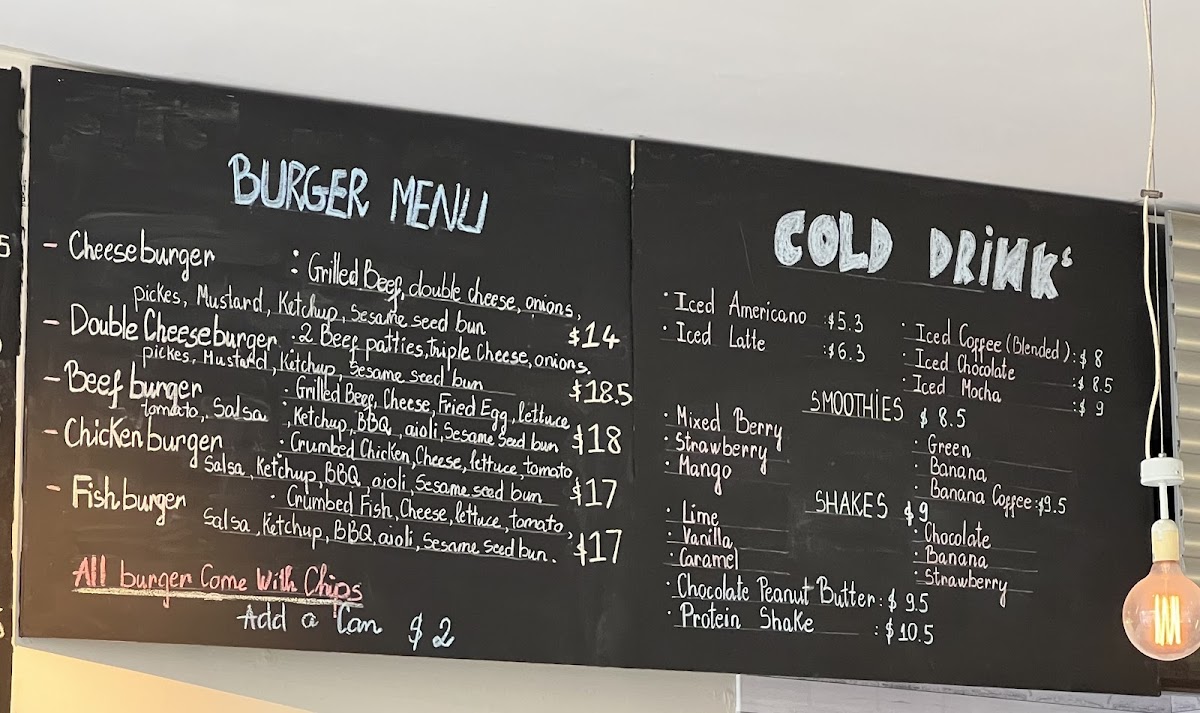 BURGER MENU
- Cheeseburger : Grilled Beef, double cheese, onions,
pickes, Mustard, Ketchup, Sesame seed bun $14
- Double Cheeseburger : 2 Beef patties, triple Cheese, onions.
pickes, Mustard, Ketchup, Sesame seed bun $18.5
- Beef burger : Grilled Beef, Cheese, Fried Egg, lettuce,
tomato, Salsa, Ketchup, BBQ, aioli, Sesame Seed bun $18
- Chicken burger : Crumbed Chicken, Cheese, lettuce, tomato,
Salsa, Ketchup, BBQ, aioli, Sesame seed bun $17
- Fish burger : Crumbed Fish, Cheese, lettuce, tomato,
Salsa, Ketchup, BBQ, aioli, Sesame Seed bun. $17
All burger Come With Chips
Add a Can $2
COLD DRINKs
· Iced Americano : $5.3
· Iced Latte : $6.3
· Iced Coffee (Blended) : $8
· Iced Chocolate : $8.5
· Iced Mocha : $9
SMOOTHIES $8.5
· Mixed Berry
· Strawberry
· Mango
· Green
· Banana
· Banana Coffee : $9.5
SHAKES $9
· Lime
· Vanilla
· Caramel
· Chocolate
· Banana
· Strawberry
· Chocolate Peanut Butter : $9.5
· Protein Shake : $10.5